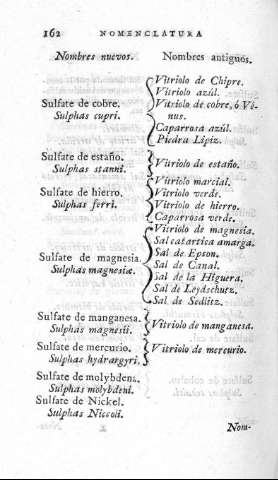 162 NOMENCLATURA
Nombres nuevos. Nombres antiguos.
Sulfate de cobre.
Sulphas cupri.
Vitriolo de Chipre.
Vitriolo azúl.
Vitriolo de cobre, ó Vé-
nus.
Caparrosa azúl.
Piedra Lipiz.
Sulfate de estaño.
Sulphas stanni.
Vitriolo de estaño.
Sulfate de hierro.
Sulphas ferri.
Vitriolo marcial.
Vitriolo verde.
Vitriolo de hierro.
Caparrosa verde.
Sulfate de magnesia.
Sulphas magnesiæ.
Vitriolo de magnesia.
Sal catartica amarga.
Sal de Epson.
Sal de Canal.
Sal de la Higuera.
Sal de Leydschutz.
Sal de Sedlitz.
Sulfate de manganesa.
Sulphas magnesii.
Vitriolo de manganesa.
Sulfate de mercurio.
Sulphas hydrargyri.
Vitriolo de mercurio.
Sulfate de molybdena.
Sulphas molybdeni.
Sulfate de Nickel.
Sulphas Niccoli.
Nom-